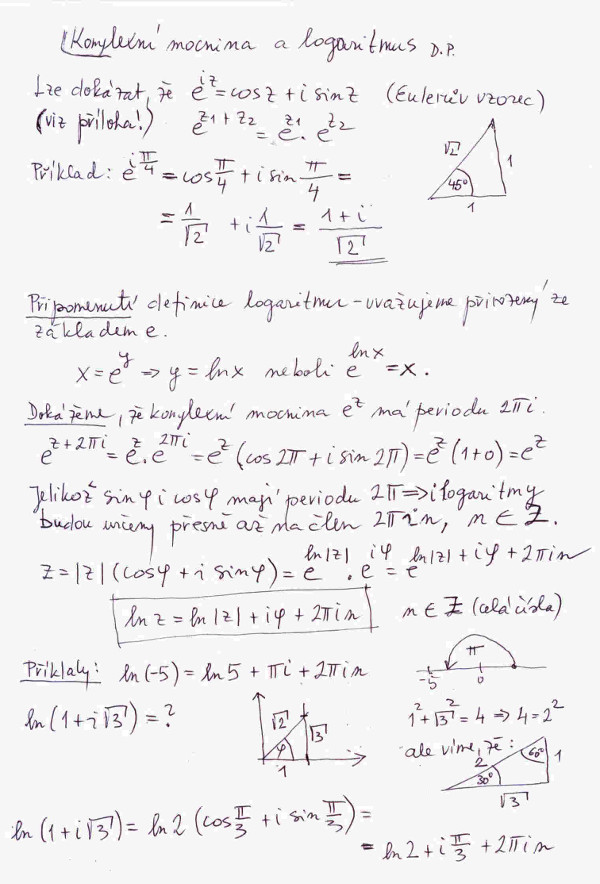 Komplexní mocnina a logaritmus D.P.
Lze dokázat, že e^{iz} = cos z + i sin z (Eulerův vzorec)
(viz příloha!) e^{z1+z2} = e^{z1} · e^{z2}
√2 1 45° 1
Příklad: e^{iπ/4} = cos π/4 + i sin π/4 =
= 1/√2 + i 1/√2 = (1+i)/√2
Připomenutí definice logaritmu - uvažujeme přirozený ze
základem e.
x = e^y ⇒ y = ln x neboli e^{ln x} = x.
Dokážeme, že komplexní mocnina e^z má periodu 2πi.
e^{z+2πi} = e^z · e^{2πi} = e^z (cos 2π + i sin 2π) = e^z (1+0) = e^z
Jelikož sin φ i cos φ mají periodu 2π ⇒ i logaritmy
budou určeny přesně až na člen 2πin, n ∈ Z.
z = |z| (cos φ + i sin φ) = e^{ln|z|} · e^{iφ} = e^{ln|z| + iφ + 2πin}
ln z = ln |z| + iφ + 2πin n ∈ Z (celá čísla)
Příklaly: ln(-5) = ln 5 + πi + 2πin
π -5 0
ln(1+i√3) = ?
√2 √3 φ 1
1² + √3² = 4 ⇒ 4 = 2²
ale víme, že:
2 60° 1 30° √3
ln(1+i√3) = ln 2 (cos π/3 + i sin π/3) =
= ln 2 + i π/3 + 2πin